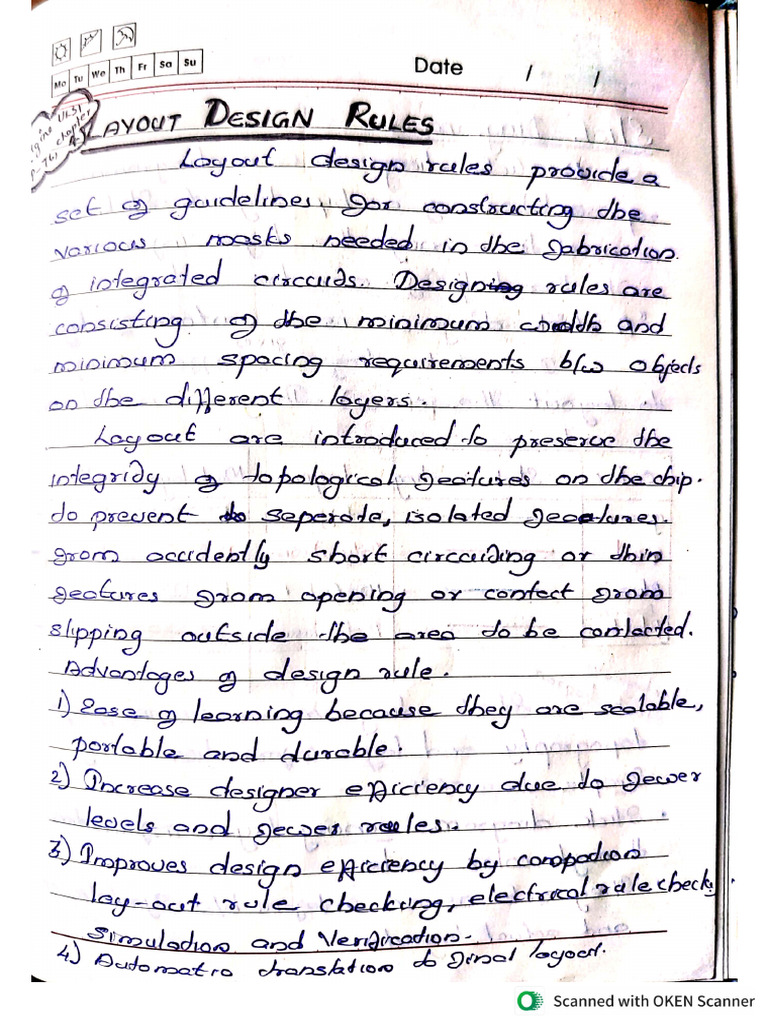 Mo Tu We Th Fr Sa Su
Date / /
VLSI
chapter
P-76,
LAYOUT DESIGN RULES
Layout design rules provide a
set of guidelines for constructing the
various masks needed in the fabrication
of integrated circuits. Design rules are
consisting of the minimum width and
minimum spacing requirements b/w objects
on the different layers.
Layout are introduced to preserve the
integrity of topological features on the chip.
to prevent seperate, isolated features.
from accidently short circuiting or thin
features from opening or contect from
slipping outside the area to be contacted.
Advantages of design rule.
1) Ease of learning because they are scalable,
portable and durable.
2) Increase designer efficiency due to fewer
levels and fewer rules.
3) Improves design efficiency by
lay-out rule checking, electrical rule check,
Simulation and Verification.
4) Automatic translation to final layout.
Scanned with OKEN Scanner